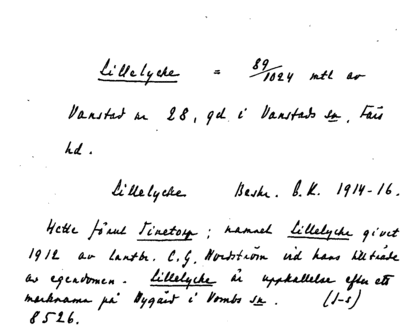 Lillelycke = 89/1024 mtl av
Vanstad nr 28, gd i Vanstads sn, Färs
hd.
Lillelycke Beskr. E.K. 1914-16.
Hette förut Tinetorp; namnet Lillelycke givet
1912 av lantbr. C.G. Nordström vid hans tillträde
av egendomen. Lillelycke är uppkallelse efter ett
marknamn på Nygård i Vombs sn. (J-s)
8526.